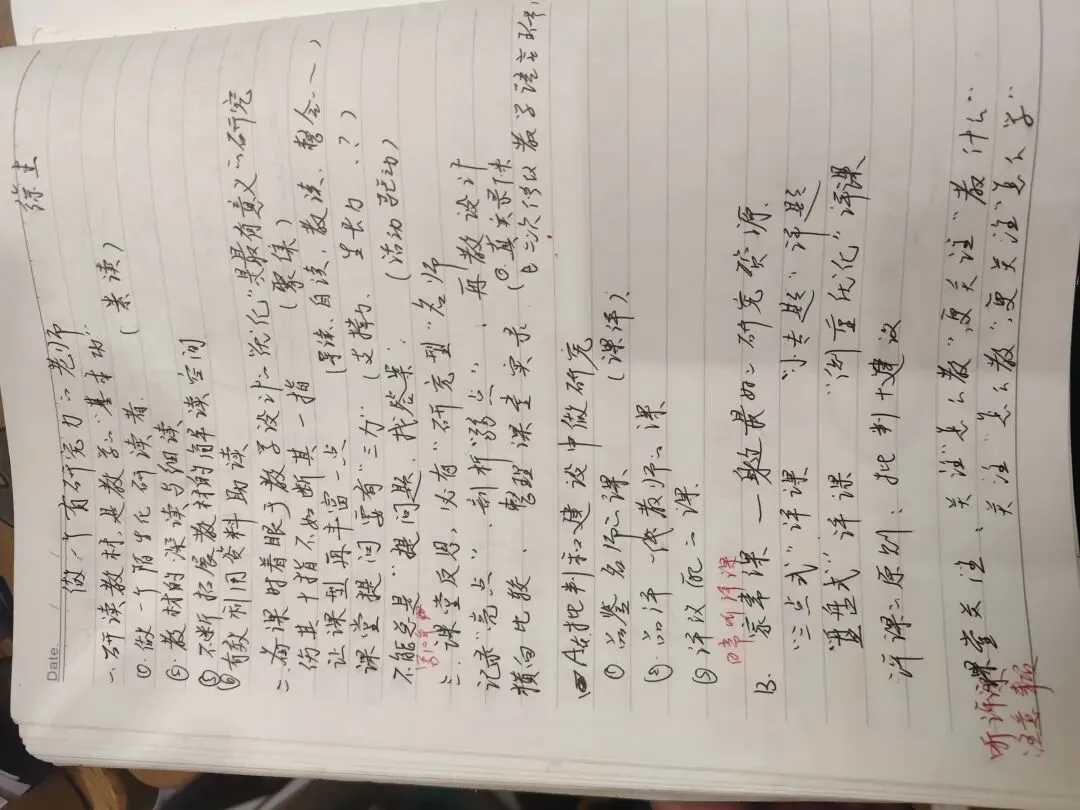 Date.
徐主
做一个有研究力的老师
一研读教材,是教学的基本功 (素读)
①.做一个陌生化研读者.
②.教材的深读与细读
③不断拓展教材的解读空间
④有效利用资料助读
二.备课时着眼于教学设计的"优化"是最有意义的研究
伤其十指不如断其一指 (聚焦)
让课型再丰富一点 (导读、自读、教读、整合一)
课堂提问要有"三力" (支撑力、生长力、?)
不能总是"提问题、找答案". (活动驱动)
三.课堂反思,必有"研究型"名师
记录"亮点"、剖析"弱点"、再教设计
横向比较、整理课堂实录 (①.真实录下来
②二次修改教学语言
四A在批判和建设中做研究
①品鉴名师的课 (课评).
②.品评一线教师的课
③评议自己的课
日常听评课
B.家常课 — 身边最好的研究资源.
"三点式"评课 "小专题"评题
"复盘式"评课 "侧重优化"评课
评课的原则:批判+建议
听评课
注意事项
课堂关注、关注"怎么教",更关注"教什么"
关注"怎么教"更关注"怎么学"